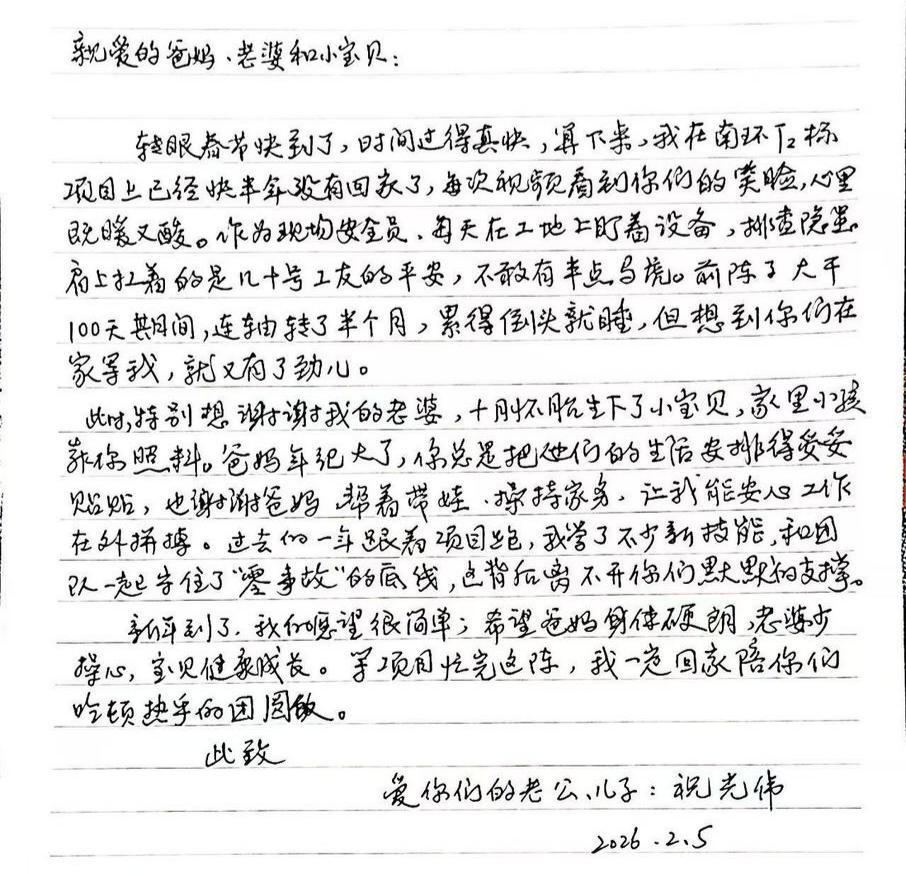 亲爱的爸妈、老婆和小宝贝:
转眼春节快到了,时间过得真快,算下来,我在南环T2标
项目上已经快半年没有回家了,每次视频看到你们的笑脸,心里
既暖又酸。作为现场安全员、每天在工地上盯着设备,排查隐患。
肩上扛着的是几十号工友的平安,不敢有半点马虎。前阵子大干
100天期间,连轴转了半个月,累得倒头就睡,但想到你们在
家等我,就又有了劲儿。
此时,特别想谢谢我的老婆,十月怀胎生下了小宝贝,家里小孩
靠你照料。爸妈年纪大了,你总是把他们的生活安排得妥妥
贴贴,也谢谢爸妈帮着带娃、操持家务、让我能安心工作
在外拼搏。过去的一年跟着项目跑,我学了不少新技能,和团
队一起守住了“零事故”的底线,这背后离不开你们默默的支撑。
新年到了、我的愿望很简单;希望爸妈身体硬朗,老婆少
操心,宝贝健康成长。等项目忙完这阵,我一定回家陪你们
吃顿热乎的团圆饭。
此致
爱你们的老公、儿子:祝光伟
2026.2.5